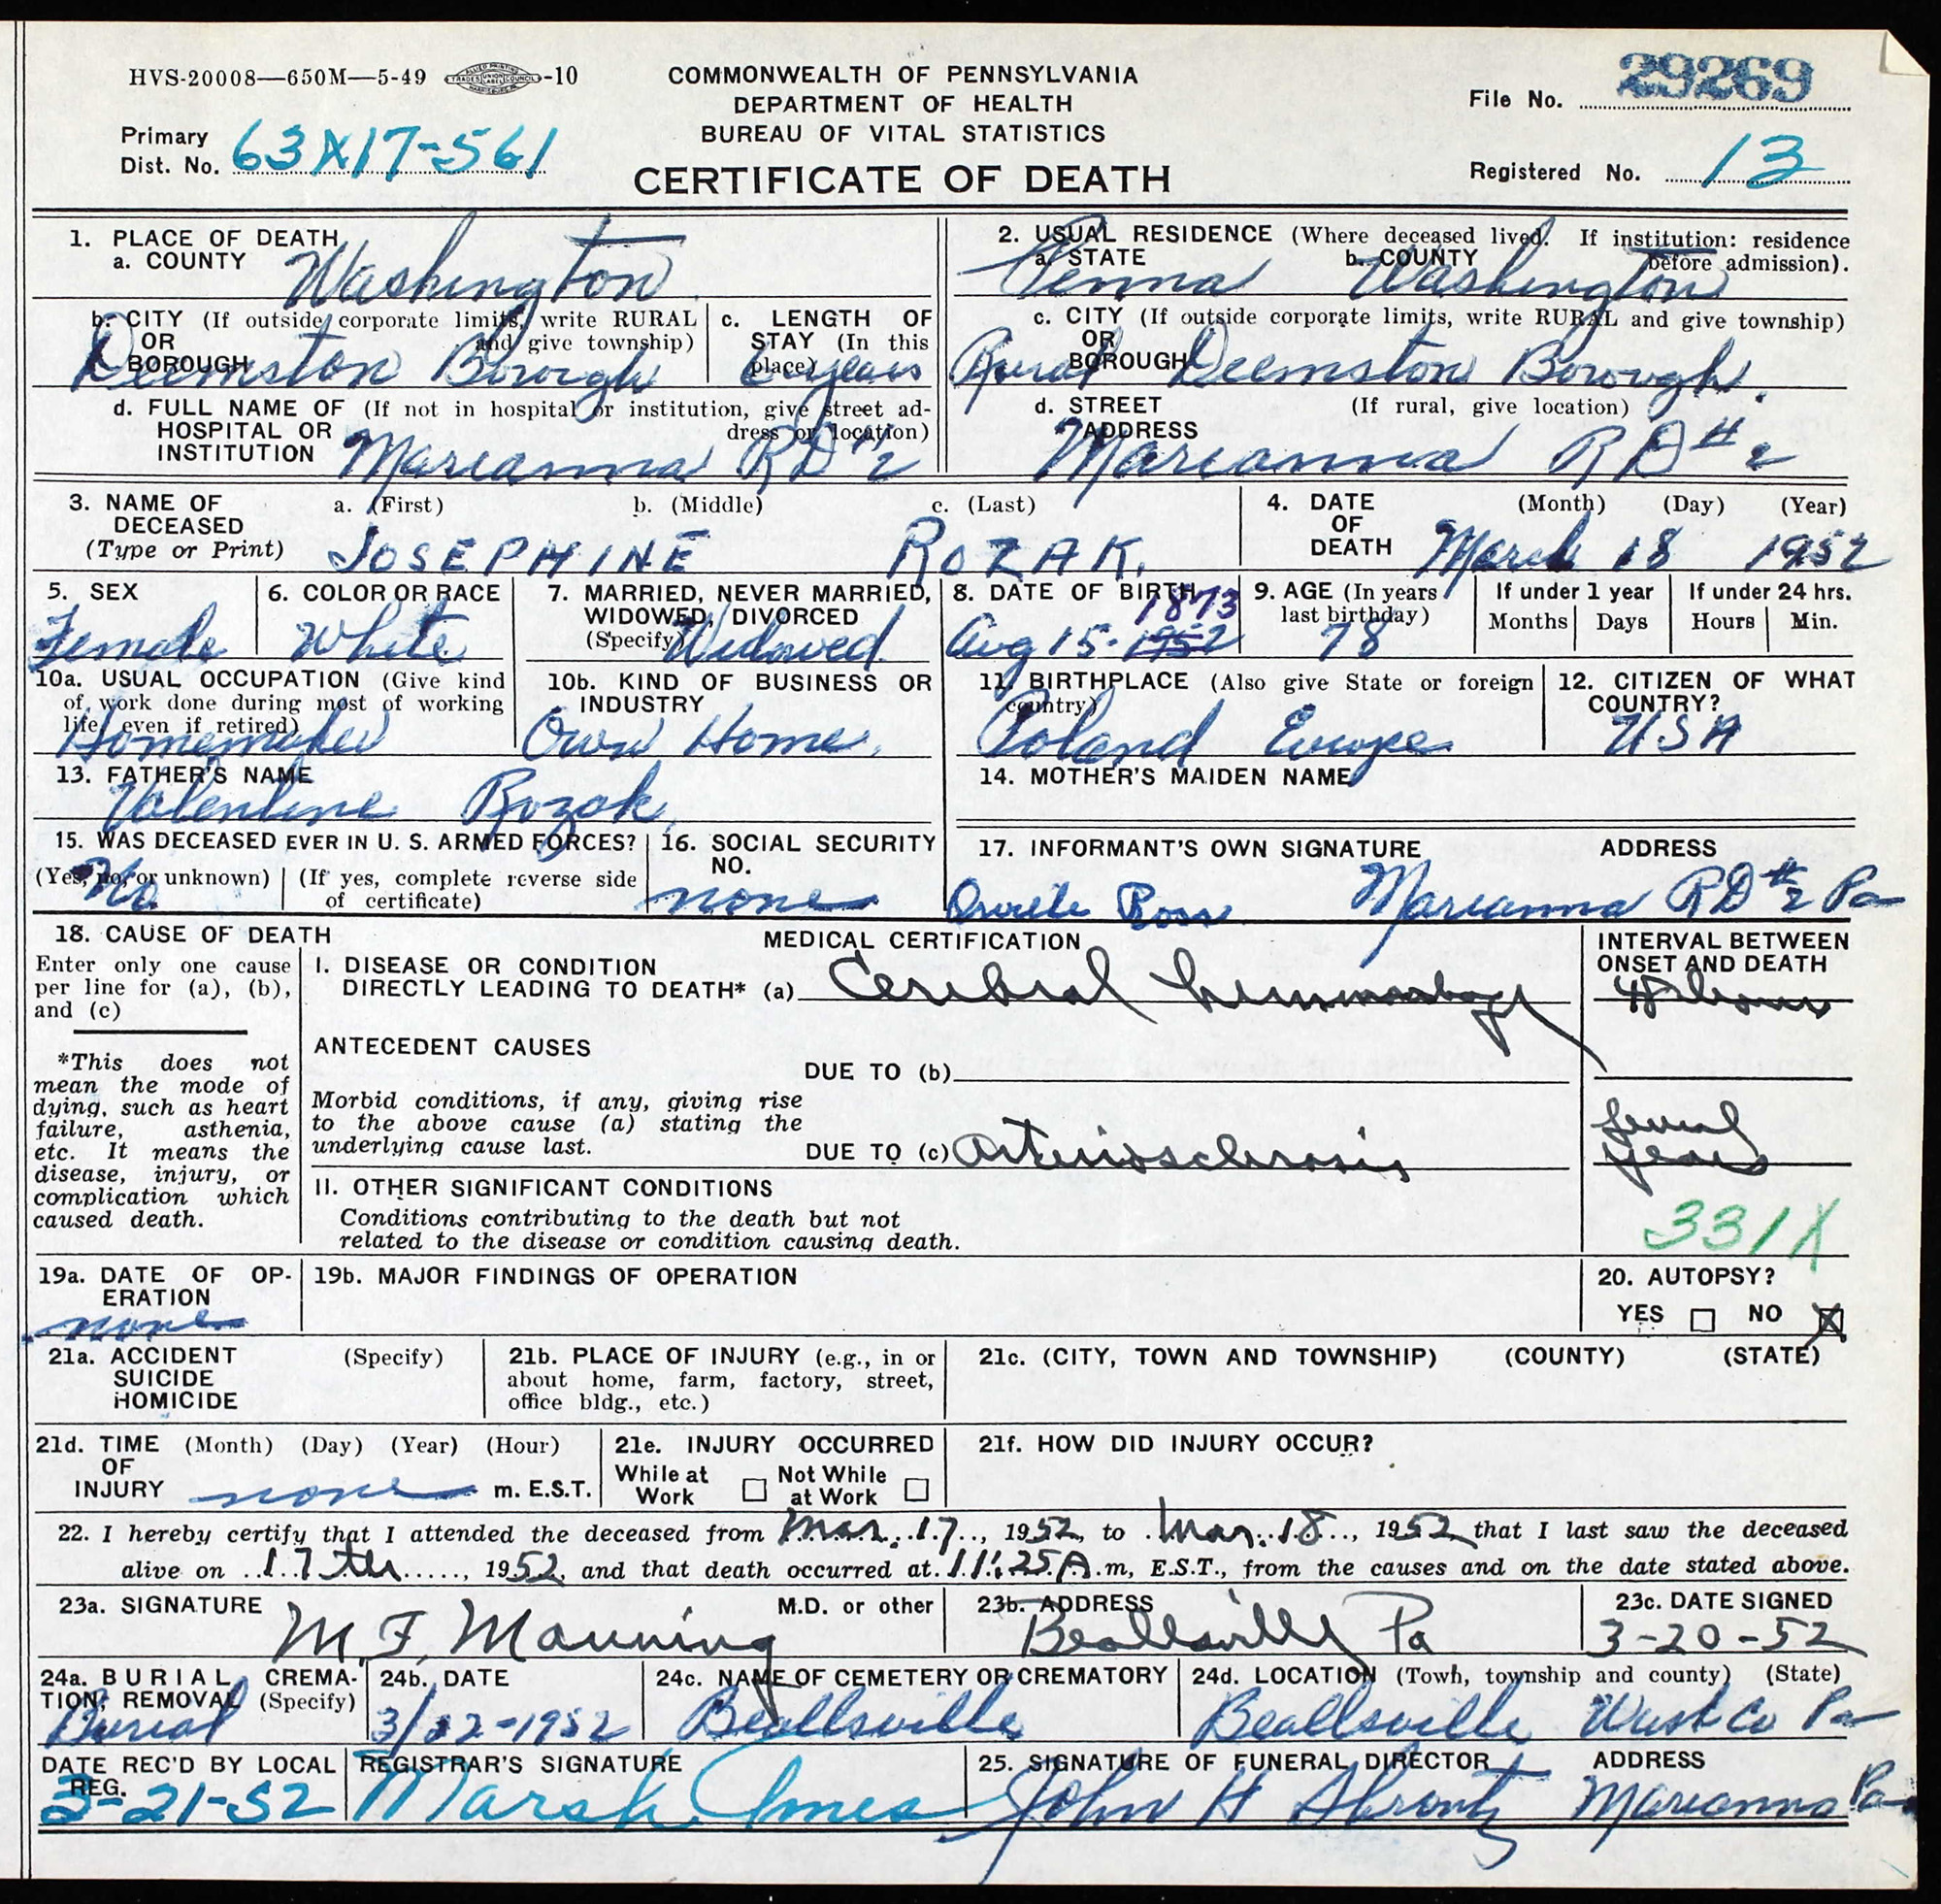 HVS-20008—650M—5-49 -10
COMMONWEALTH OF PENNSYLVANIA
DEPARTMENT OF HEALTH
BUREAU OF VITAL STATISTICS
CERTIFICATE OF DEATH
File No. 29269
Primary Dist. No. 63X17-561
Registered No. 13
1. PLACE OF DEATH
a. COUNTY Washington
b. CITY (If outside corporate limits, write RURAL and give township)
OR BOROUGH Deemston Borough
c. LENGTH OF STAY (In this place) 6 years
d. FULL NAME OF (If not in hospital or institution, give street address or location)
HOSPITAL OR INSTITUTION Marianna RD #2
2. USUAL RESIDENCE (Where deceased lived. If institution: residence before admission).
a. STATE Penna b. COUNTY Washington
c. CITY (If outside corporate limits, write RURAL and give township)
OR BOROUGH Rural Deemston Borough.
d. STREET ADDRESS (If rural, give location)
Marianna RD #2
3. NAME OF DECEASED (Type or Print)
a. (First) b. (Middle) c. (Last)
JOSEPHINE ROZAK.
4. DATE OF DEATH (Month) (Day) (Year)
March 18 1952
5. SEX
Female
6. COLOR OR RACE
White
7. MARRIED, NEVER MARRIED, WIDOWED, DIVORCED (Specify)
Widowed
8. DATE OF BIRTH
Aug 15-1952 1873
9. AGE (In years last birthday)
78
If under 1 year
Months Days
If under 24 hrs.
Hours Min.
10a. USUAL OCCUPATION (Give kind of work done during most of working life, even if retired)
Homemaker
10b. KIND OF BUSINESS OR INDUSTRY
Own Home.
11. BIRTHPLACE (Also give State or foreign country)
Poland Europe
12. CITIZEN OF WHAT COUNTRY?
USA
13. FATHER'S NAME
Valentine Rozak
14. MOTHER'S MAIDEN NAME
15. WAS DECEASED EVER IN U. S. ARMED FORCES?
(Yes, no, or unknown) (If yes, complete reverse side of certificate)
No
16. SOCIAL SECURITY NO.
none
17. INFORMANT'S OWN SIGNATURE ADDRESS
Marianna RD #2 Pa
18. CAUSE OF DEATH
Enter only one cause per line for (a), (b), and (c)
*This does not mean the mode of dying, such as heart failure, asthenia, etc. It means the disease, injury, or complication which caused death.
MEDICAL CERTIFICATION
I. DISEASE OR CONDITION
DIRECTLY LEADING TO DEATH* (a) Cerebral hemmorhage
ANTECEDENT CAUSES
DUE TO (b)
Morbid conditions, if any, giving rise to the above cause (a) stating the underlying cause last.
DUE TO (c) Arteriosclerosis
II. OTHER SIGNIFICANT CONDITIONS
Conditions contributing to the death but not related to the disease or condition causing death.
INTERVAL BETWEEN ONSET AND DEATH
48 hours
several years
331X
19a. DATE OF OPERATION
none
19b. MAJOR FINDINGS OF OPERATION
20. AUTOPSY?
YES NO X
21a. ACCIDENT (Specify)
SUICIDE
HOMICIDE
21b. PLACE OF INJURY (e.g., in or about home, farm, factory, street, office bldg., etc.)
21c. (CITY, TOWN AND TOWNSHIP) (COUNTY) (STATE)
21d. TIME (Month) (Day) (Year) (Hour)
OF INJURY none m. E.S.T.
21e. INJURY OCCURRED
While at Work Not While at Work
21f. HOW DID INJURY OCCUR?
22. I hereby certify that I attended the deceased from Mar. 17, 1952, to Mar. 18, 1952 that I last saw the deceased
alive on 17th, 1952, and that death occurred at 11:25 A.m, E.S.T., from the causes and on the date stated above.
23a. SIGNATURE M.D. or other
M. F. Manning
23b. ADDRESS
Beallsville Pa
23c. DATE SIGNED
3-20-52
24a. BURIAL, CREMATION, REMOVAL (Specify)
Burial
24b. DATE
3/22-1952
24c. NAME OF CEMETERY OR CREMATORY
Beallsville
24d. LOCATION (Town, township and county) (State)
Beallsville Wash Co Pa
DATE REC'D BY LOCAL REG.
3-21-52
REGISTRAR'S SIGNATURE
25. SIGNATURE OF FUNERAL DIRECTOR ADDRESS
John H Marianna Pa